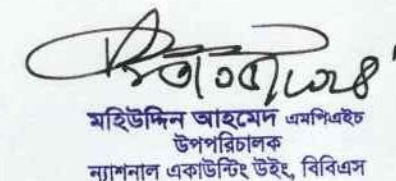 মহিউদ্দিন আহমেদ এমপিএইচ
উপপরিচালক
ন্যাশনাল একাউন্টিং উইং, বিবিএস